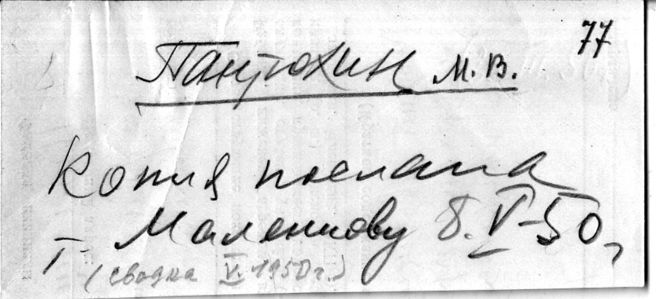 77
Пантюхин М.В.
Копия послана
т. Маленкову 8.V-50,
(сводка V. 1950г.)